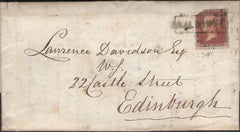 Lawrence Davidson Esq
W.S.
22 Castle Street
Edinburgh